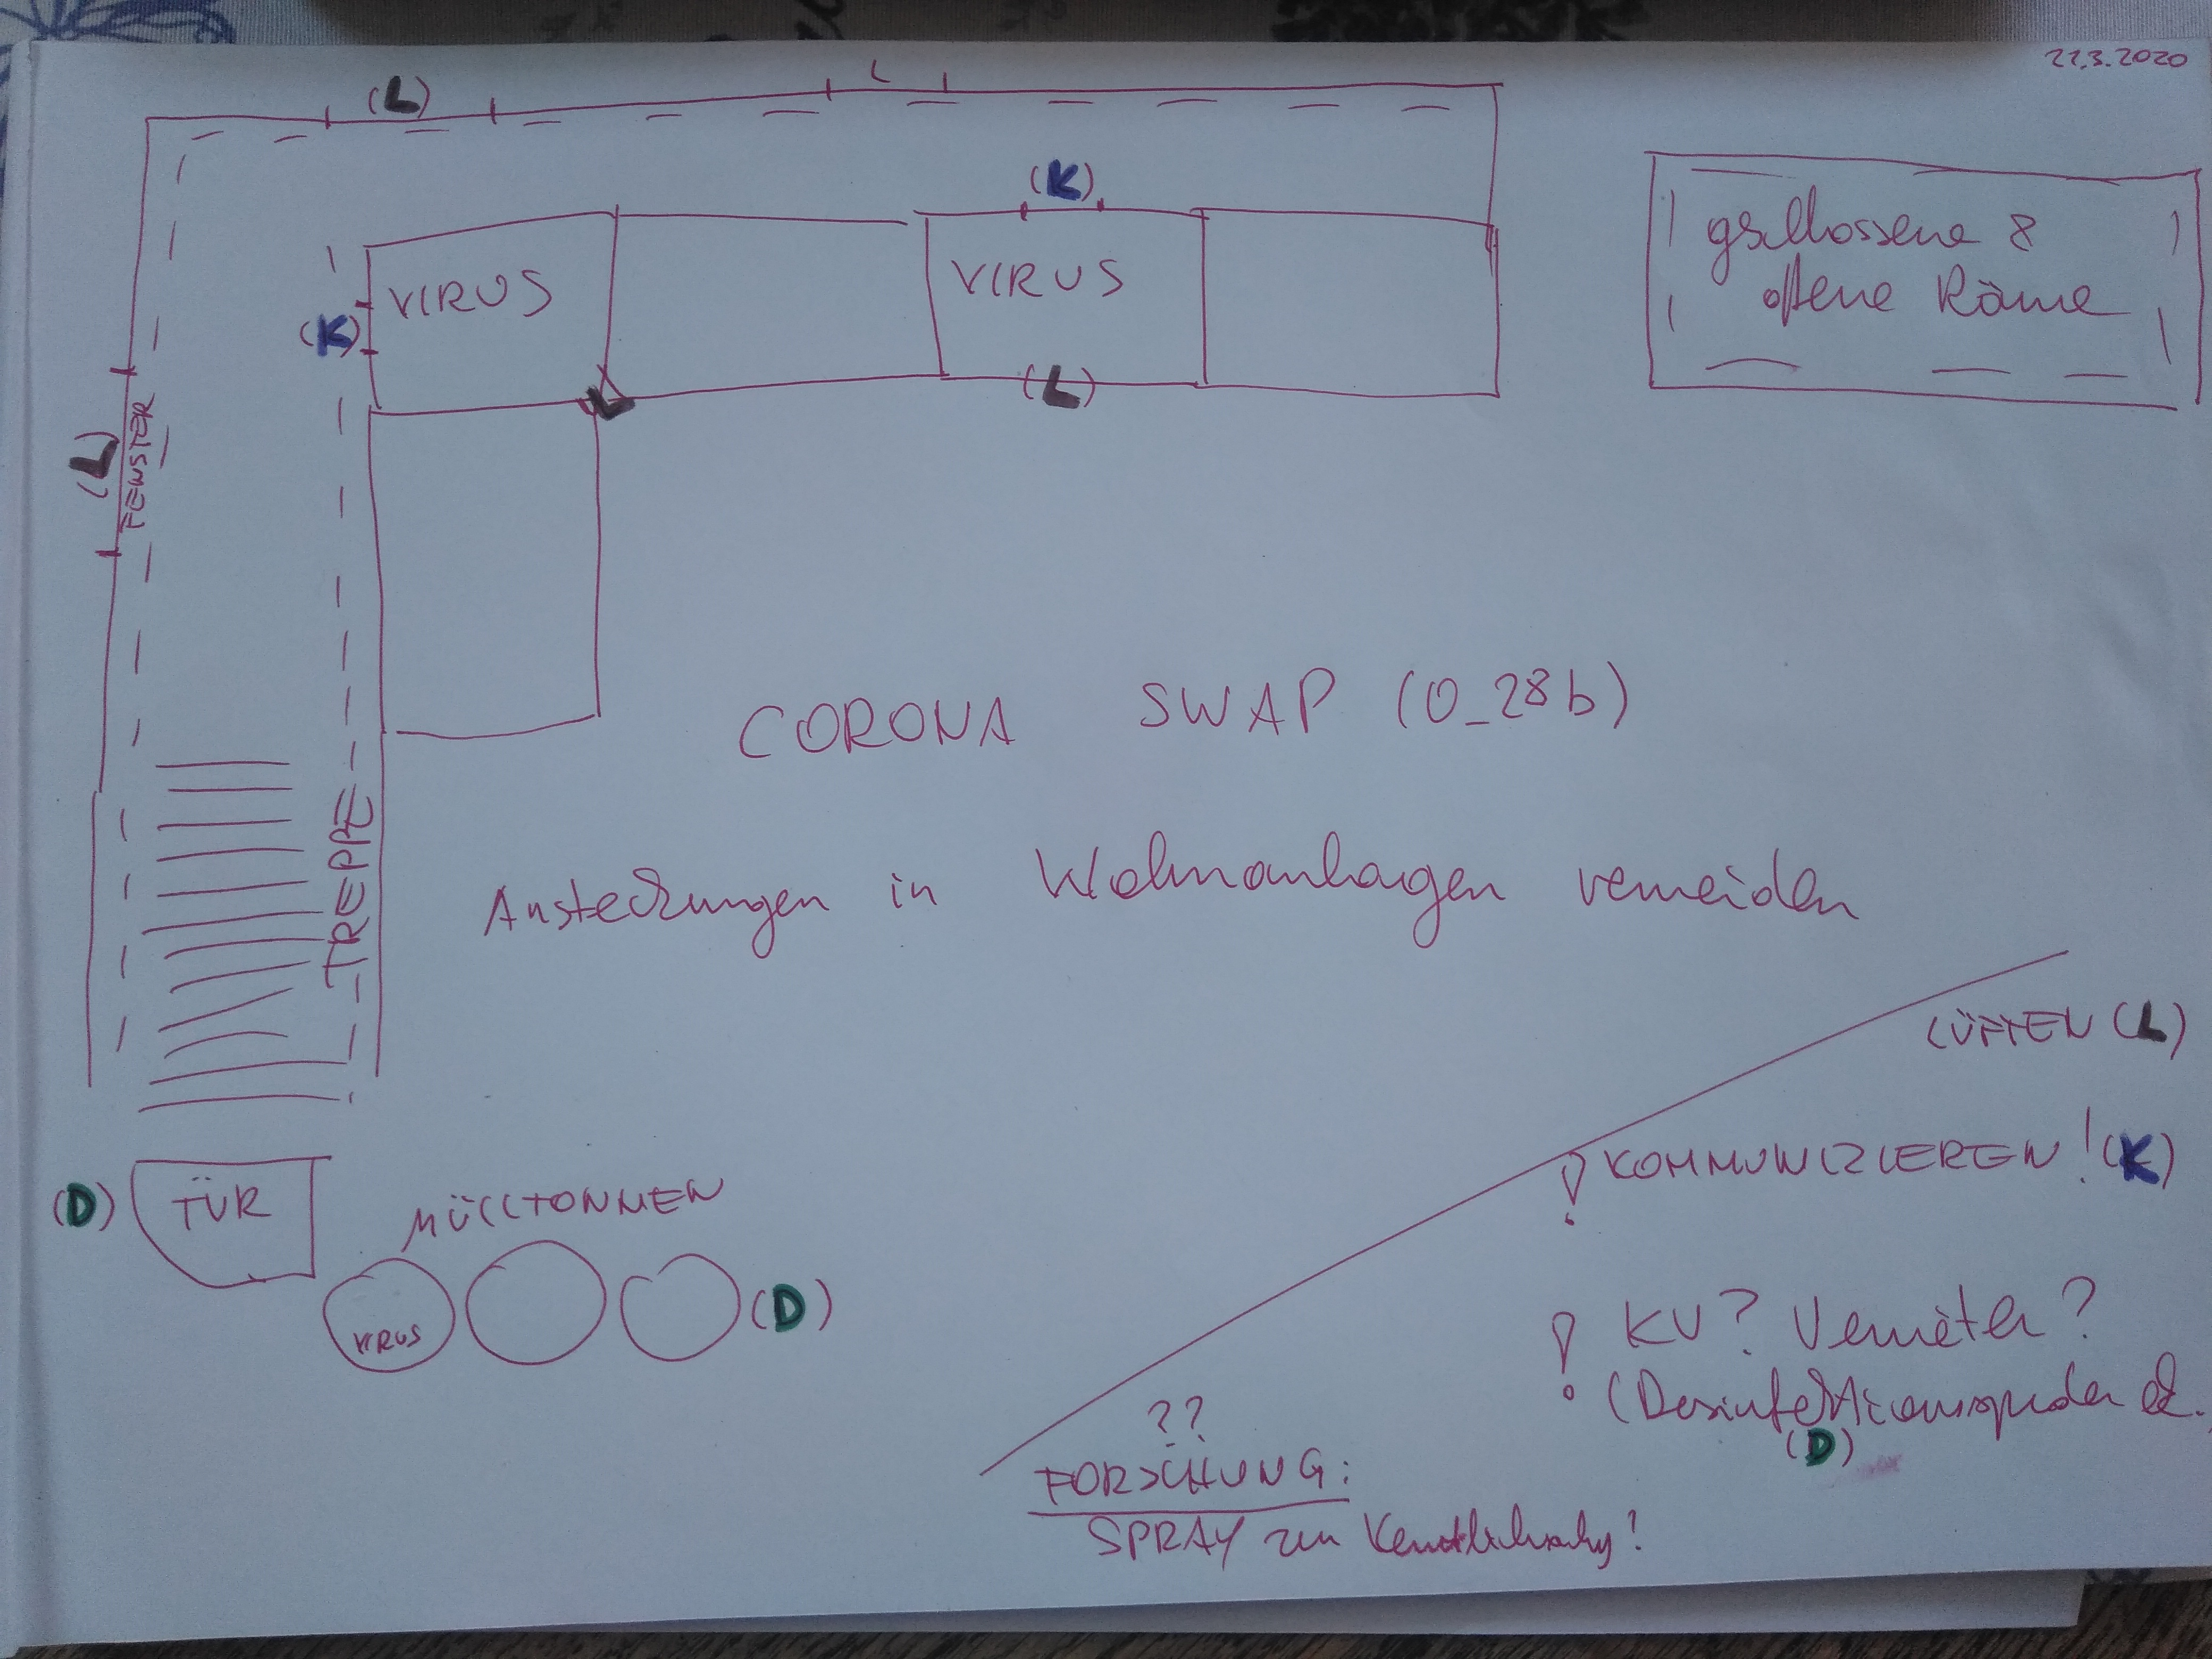 22.3.2020
(L)
L
(K)
gschlossene &
offene Räume
VIRUS
VIRUS
(K)
L
(L)
(L)
FENSTER
CORONA SWAP (0_28b)
TREPPE
Ansteckungen in Wohnanlagen vermeiden
LÜFTEN (L)
! KOMMUNIZIEREN! (K)
(D)
TÜR
MÜLLTONNEN
VIRUS
(D)
! KV? Vermieter?
(Desinfektionsspender
(D)
??
FORSCHUNG:
SPRAY zur Kenntlichmachg?